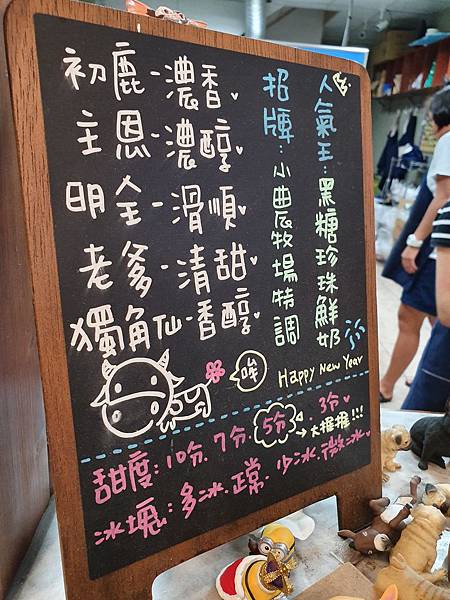 人氣王：黑糖珍珠鮮奶
招牌：小農牧場特調
初鹿－濃香
主恩－濃醇
明全－滑順
老爹－清甜
獨角仙－香醇
哞
Happy New Year
甜度：10分.7分.5分.3分
→大推推!!!
冰塊：多冰.正常.少冰.微冰